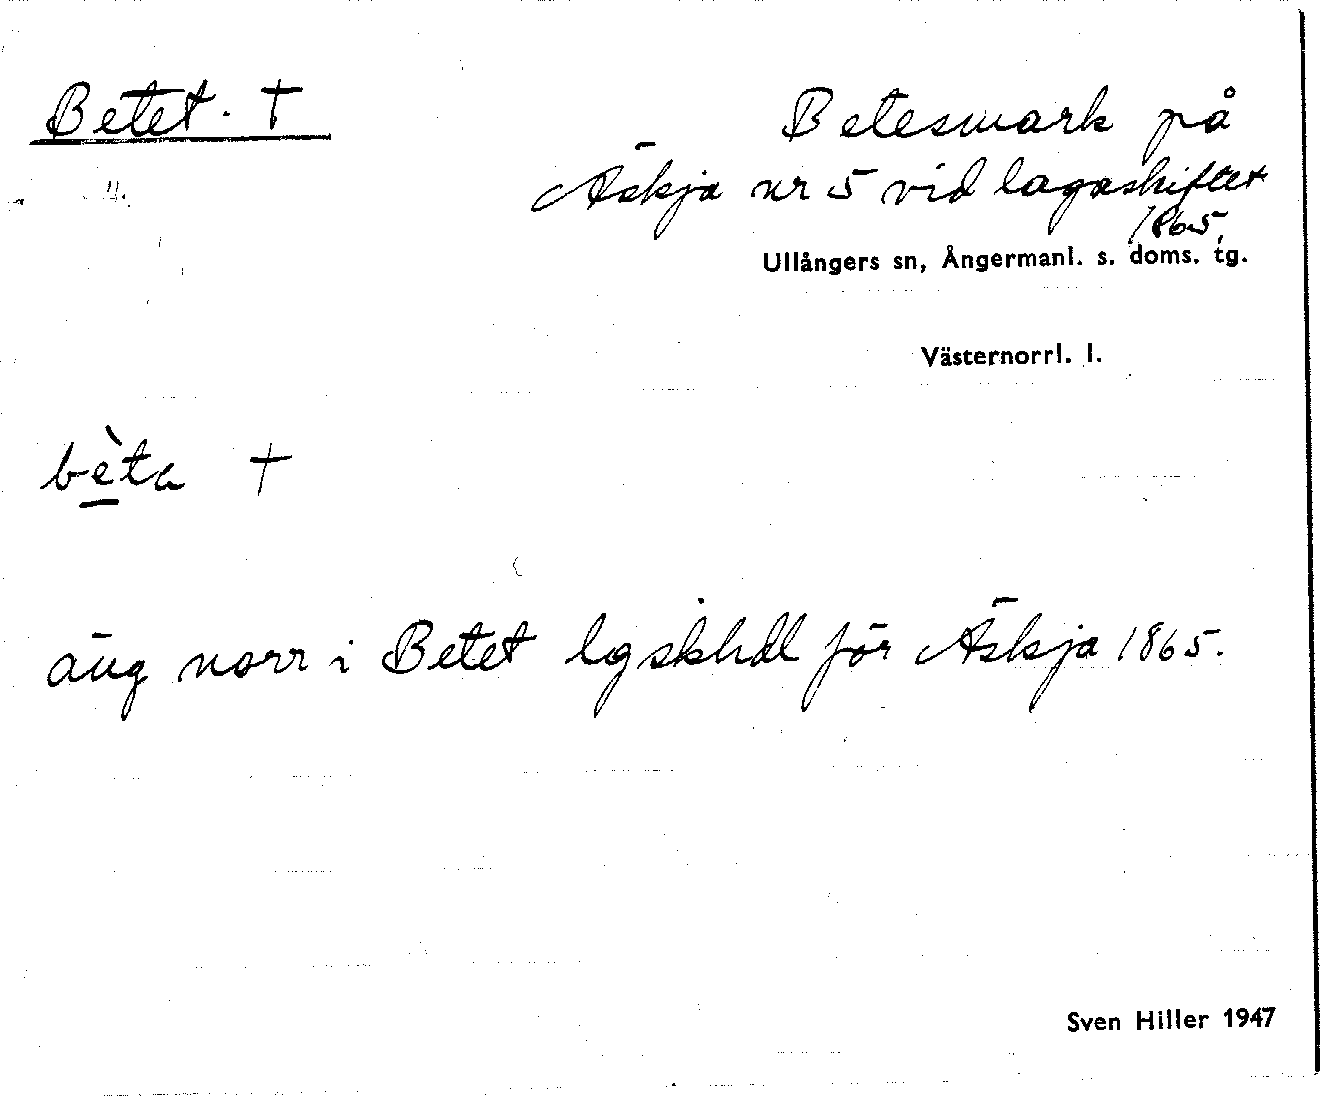 Betet. †
Betesmark på
Äskja nr 5 vid lagaskiftet
1865.
Ullångers sn, Ångermanl. s. doms. tg.
Västernorrl. l.
bèta †
äng norr i Betet lgskhdl för Äskja 1865.
Sven Hiller 1947